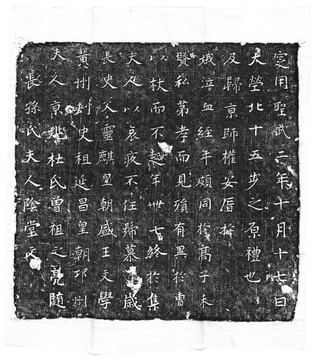 長孫氏夫人陰堂文
夫人京兆杜氏曾祖之亮隨
黃州刺史祖延昌皇朝邛州
長史父靈麒皇朝王文學
夫人以哀疾不任歲
以杖而不起年卅七終於集
賢私第孝而見殯有異於曹
娥泣血経年頗同於高子未
及歸京師權安厝於
大塋北十五步之原禮也
爰用聖武二年十月十七日